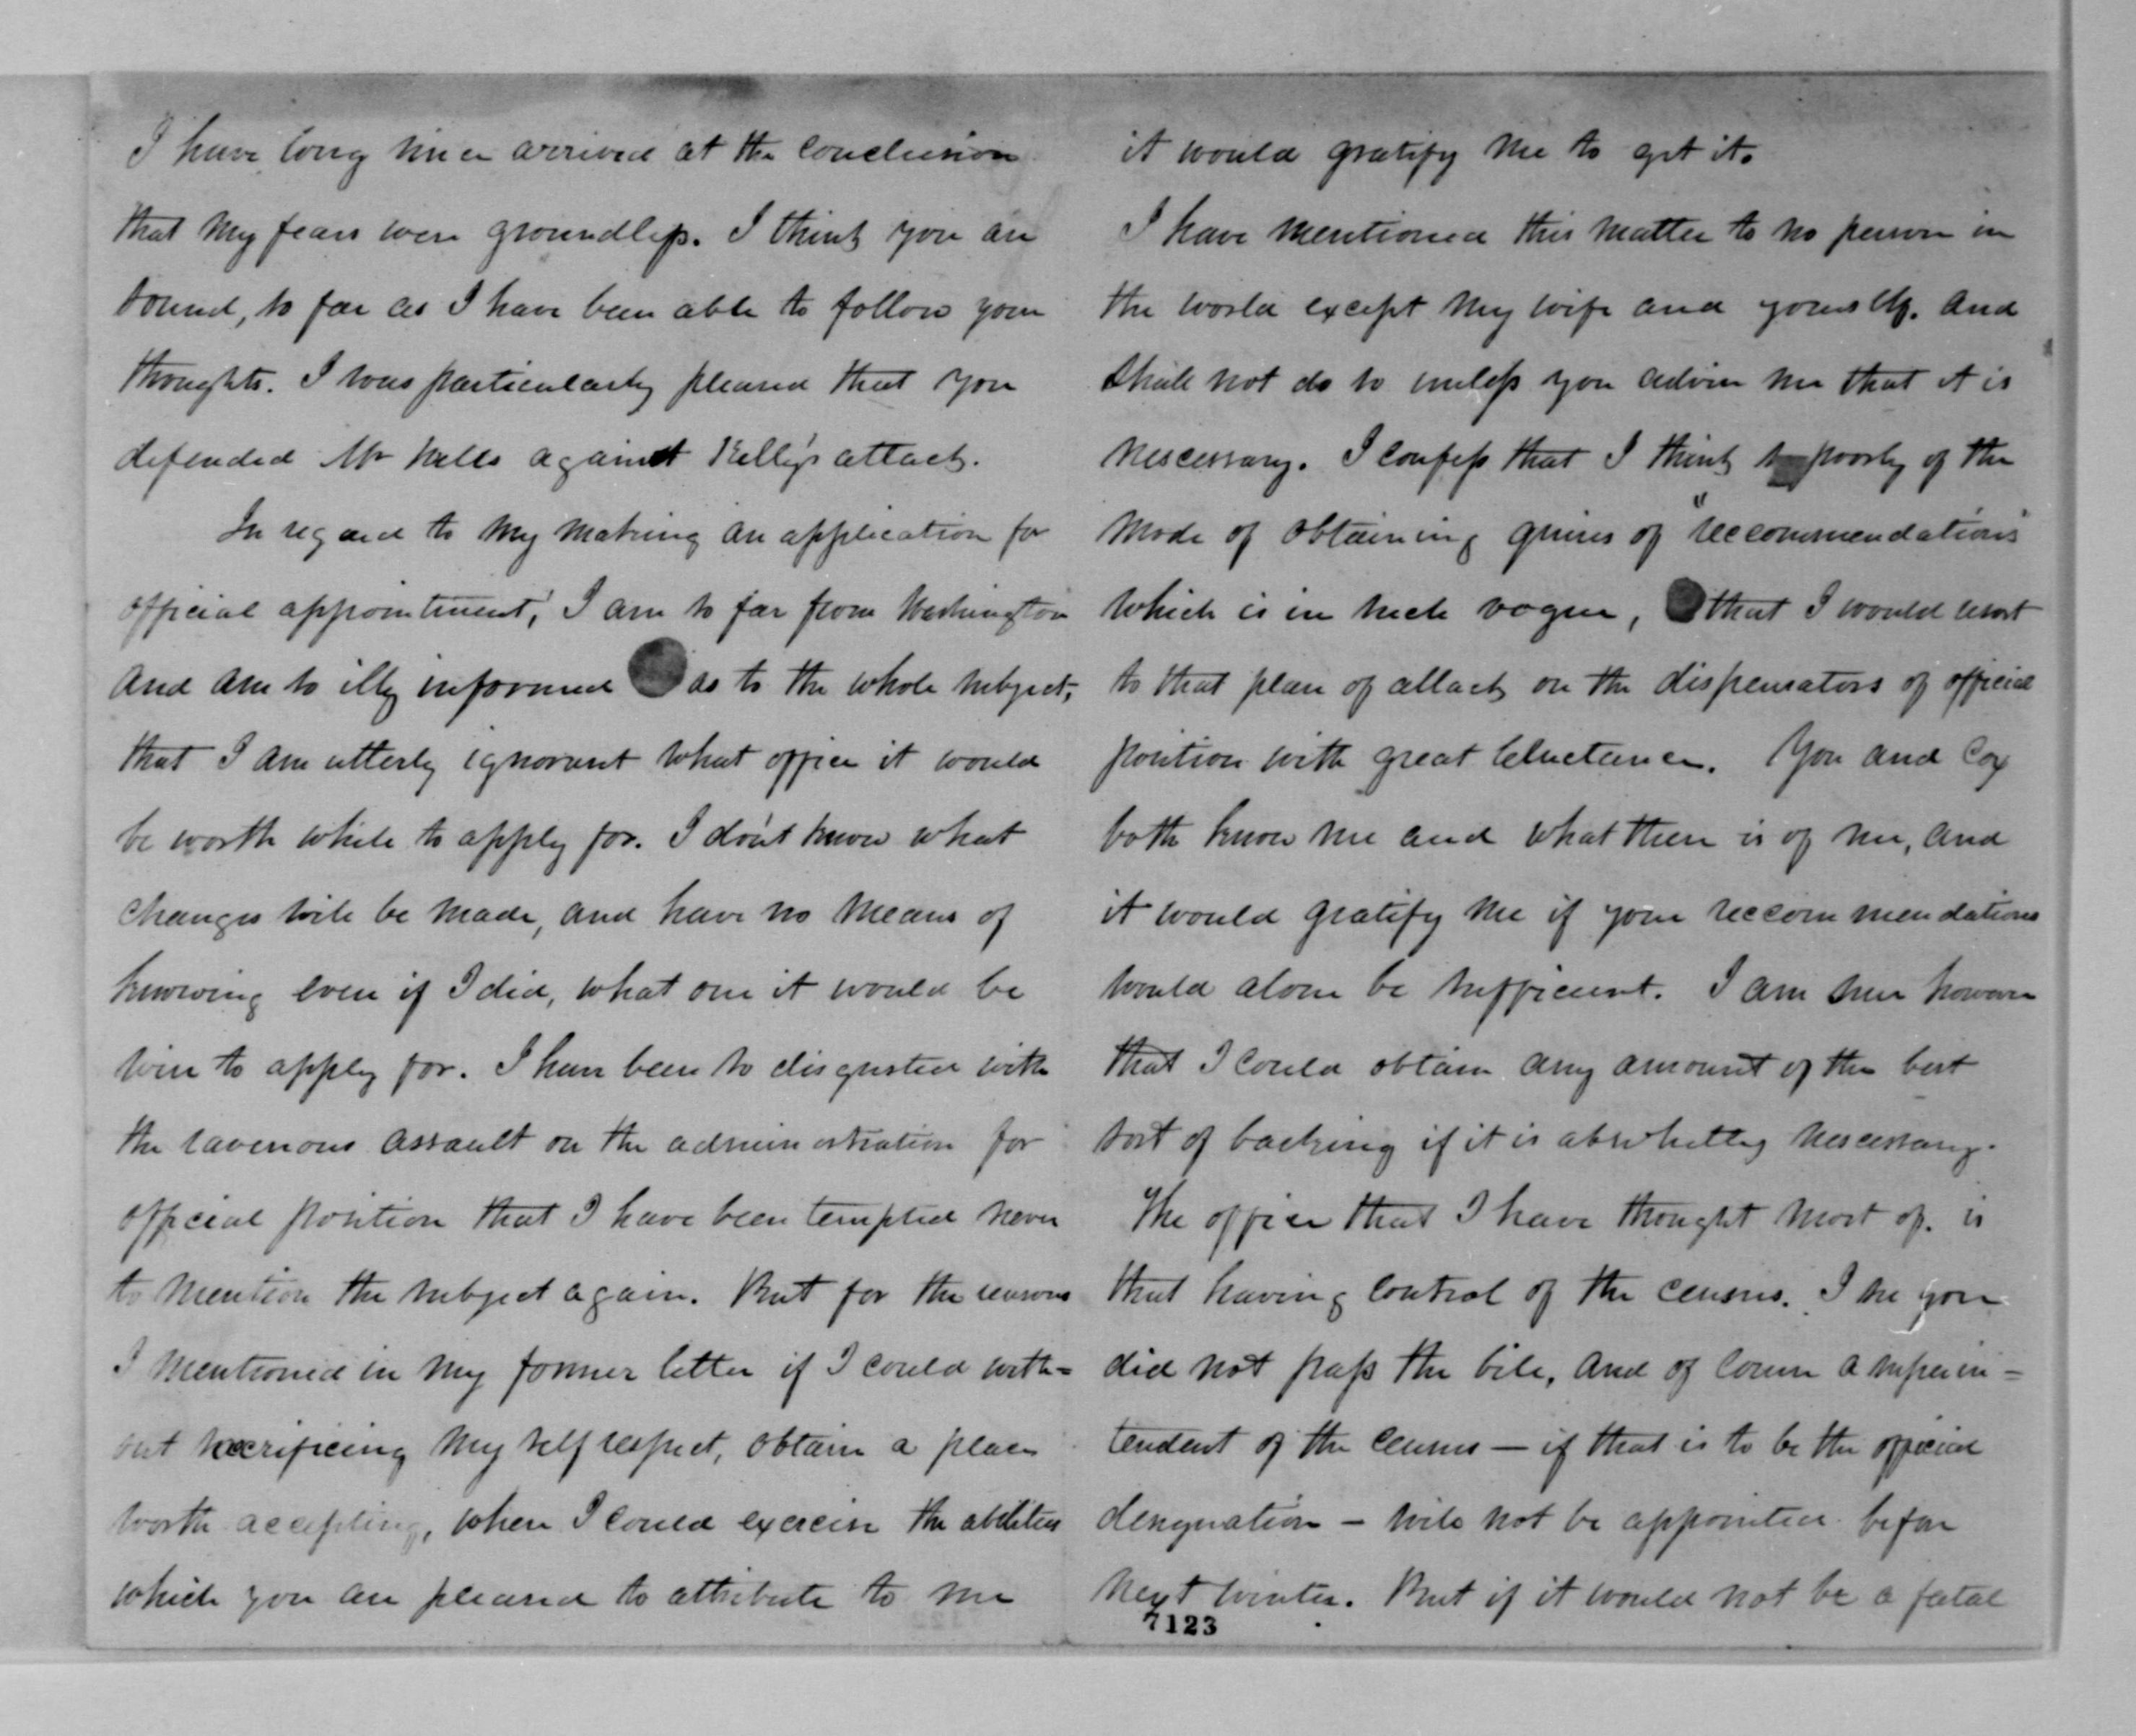 I have long since arrived at the conclusion
that my fears were groundless. I think you are
sound, so far as I have been able to follow your
thoughts. I was particularly pleased that you
defended Mr Wells against Kelly's attack.
In regard to my making an application for
official appointment, I am so far from Washington
and am so illy informed as to the whole subject,
that I am utterly ignorant what office it would
be worth while to apply for. I don't know what
changes will be made, and have no means of
knowing even if I did, what one it would be
wise to apply for. I have been so disgusted with
the ravenous assault on the administration for
official position that I have been tempted never
to mention the subject again. But for the reasons
I mentioned in my former letter if I could with=
out sacrificing my self respect, obtain a place
worth accepting, where I could exercise the abilities
which you are pleased to attribute to me
it would gratify me to get it.
I have mentioned this matter to no person in
the world except my wife and yourself. and
shall not do so unless you advise me that it is
nescessary. I confess that I think so poorly of the
mode of obtaining quires of "reccommendations"
which is in such vogue, that I would resort
to that plan of attack on the dispensators of official
position with great reluctance. You and Cox
both know me and what there is of me, and
it would gratify me if your reccommendations
would alone be sufficient. I am sure however
that I could obtain any amount of the best
sort of backing if it is absolutely nescessary.
The office that I have thought most of. is
that having control of the census. I see you
did not pass the bill, and of course a superin=
tendent of the census — if that is to be the official
designation — will not be appointed before
next winter. But if it would not be a fatal
7123